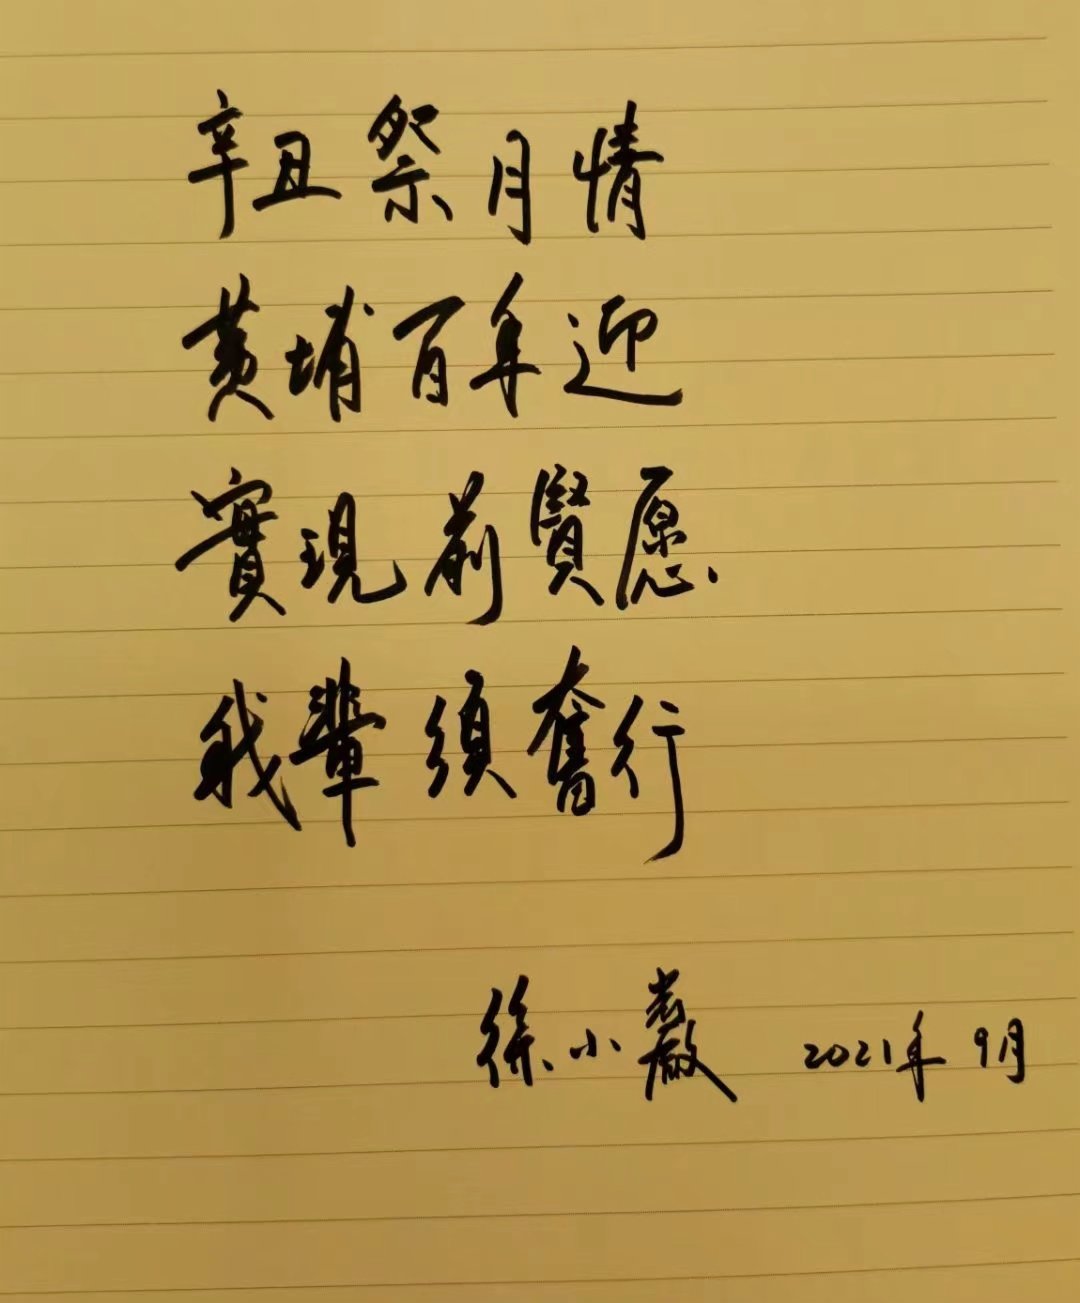 辛丑祭月情
黄埔百年迎
實現前賢愿
我輩須奮行
徐小巖 2021年9月